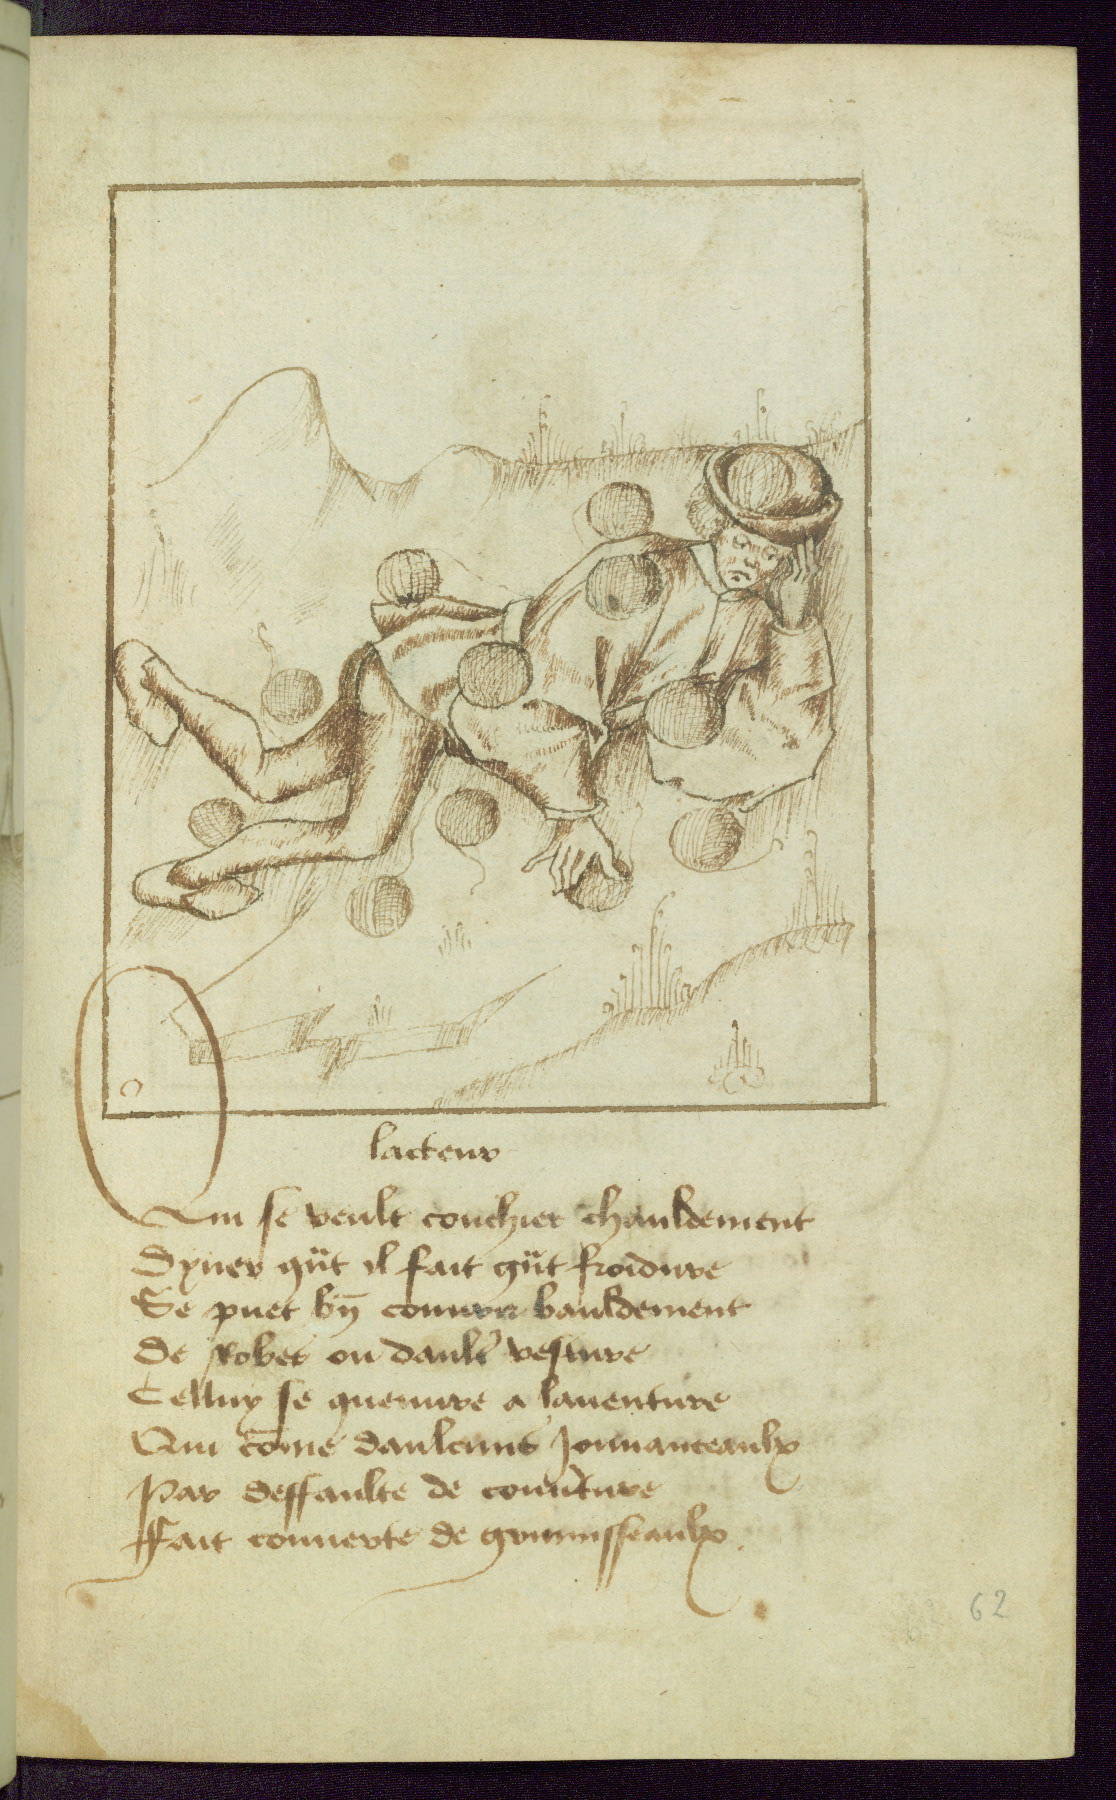 lacteur
Qui se veult couchier chauldement
Dyver qūt il fait gūt froidure
Se puet bn̄ couurir bauldement
De robes ou dault' vesture
Celluy se queuure a lauenture
Qui cōme daulcuns Jouuanceaulx
Par deffaulte de couu'ture
Ffait couuerte de grumisseaulx.
62